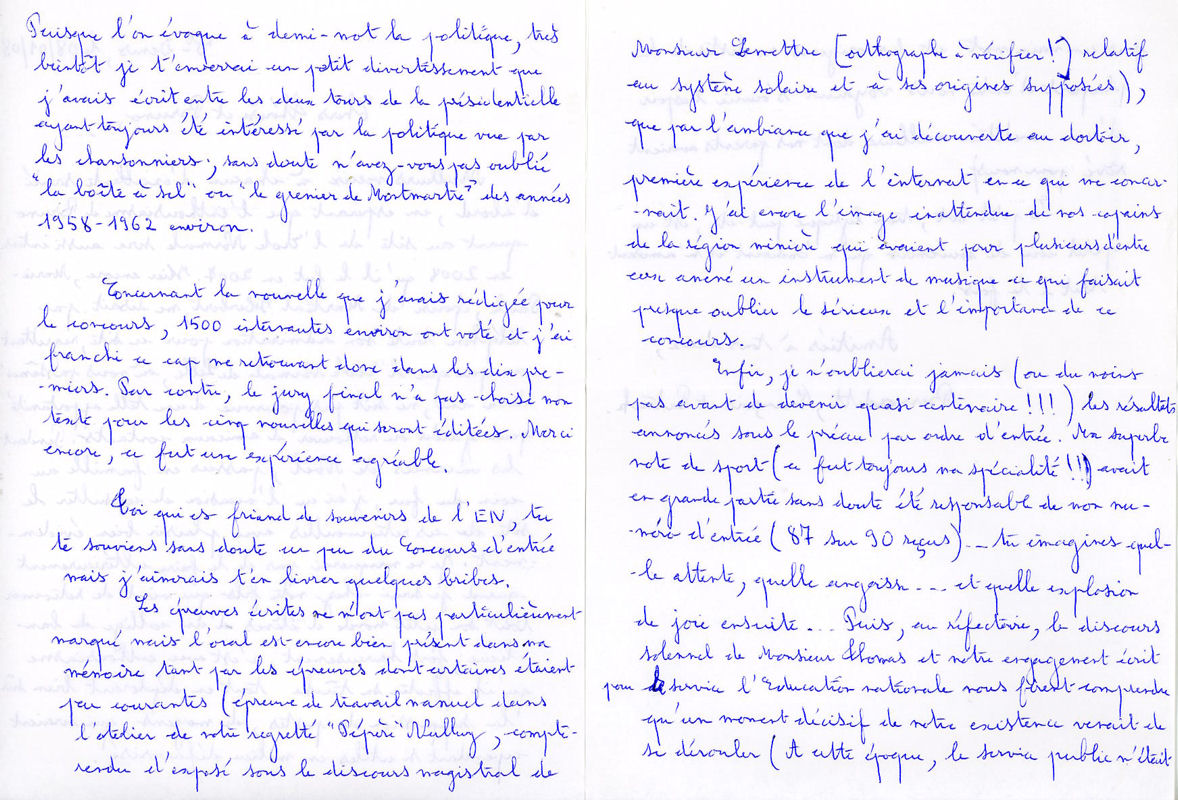 Puisque l'on évoque à demi-mot la politique, très
bientôt je t'enverrai un petit divertissement que
j'avais écrit entre les deux tours de la présidentielle
ayant toujours été intéressé par la politique vue par
les chansonniers ; sans doute n'avez-vous pas oublié
"la boîte à sel" ou "le grenier de Montmartre" des années
1958-1962 environ.
Concernant la nouvelle que j'avais rédigée pour
le concours, 1500 internautes environ ont voté et j'ai
franchi ce cap me retrouvant donc dans les dix pre-
-miers. Par contre, le jury final n'a pas choisi mon
texte pour les cinq nouvelles qui seront éditées. Merci
encore, ce fut une expérience agréable.
Toi qui es friand de souvenirs de l'EN, tu
te souviens sans doute un peu du Concours d'entrée
mais j'aimerais t'en livrer quelques bribes.
Les épreuves écrites ne m'ont pas particulièrement
marqué mais l'oral est encore bien présent dans ma
mémoire tant par les épreuves dont certaines étaient
peu courantes (épreuve de travail manuel dans
l'atelier de notre regretté "Pépère", compte-
rendu d'exposé sous le discours magistral de
Monsieur Lemettre [orthographe à vérifier !] relatif
au système solaire et à ses origines supposées),
que par l'ambiance que j'ai découverte au dortoir,
première expérience de l'internat en ce qui me concer-
-nait. J'ai encore l'image inattendue de nos copains
de la région minière qui avaient pour plusieurs d'entre
eux amené un instrument de musique ce qui faisait
presque oublier le sérieux et l'importance de ce
concours.
Enfin, je n'oublierai jamais (ou du moins
pas avant de devenir quasi centenaire !!!) les résultats
annoncés sous le préau par ordre d'entrée. Ma superbe
note de sport (ce fut toujours ma spécialité !!!) avait
en grande partie sans doute été responsable de mon nu-
-méro d'entrée (87 sur 90 reçus)... tu imagines quel-
-le attente, quelle angoisse... et quelle explosion
de joie ensuite... Puis, au réfectoire, le discours
solennel de Monsieur Thomas et notre engagement écrit
pour service l'Education nationale nous firent comprendre
qu'un moment décisif de notre existence venait de
se dérouler (A cette époque, le service public n'était